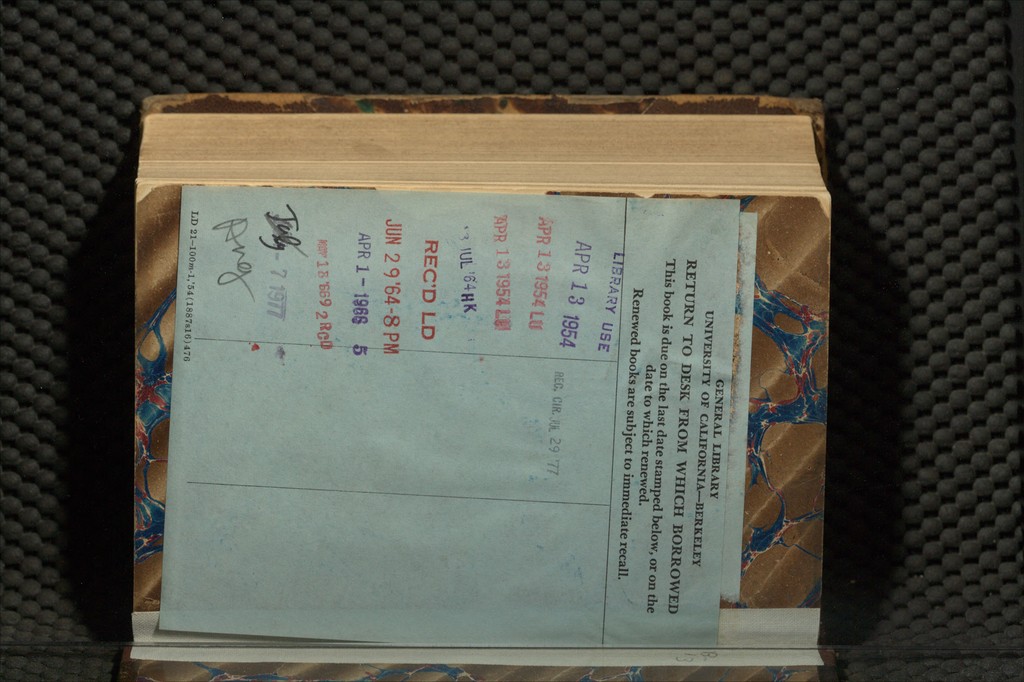 GENERAL LIBRARY
UNIVERSITY OF CALIFORNIA—BERKELEY
RETURN TO DESK FROM WHICH BORROWED
This book is due on the last date stamped below, or on the
date to which renewed.
Renewed books are subject to immediate recall.
LIBRARY USE
APR 13 1954
REC. CIR. JUL 29 '77
APR 13 1954 LU
APR 13 1954 LU
JUL '64 HK
REC'D LD
JUN 29 '64-8 PM
APR 1 - 1966 5
July - 7 1977
LD 21-100m-1,'54(1887s16)476